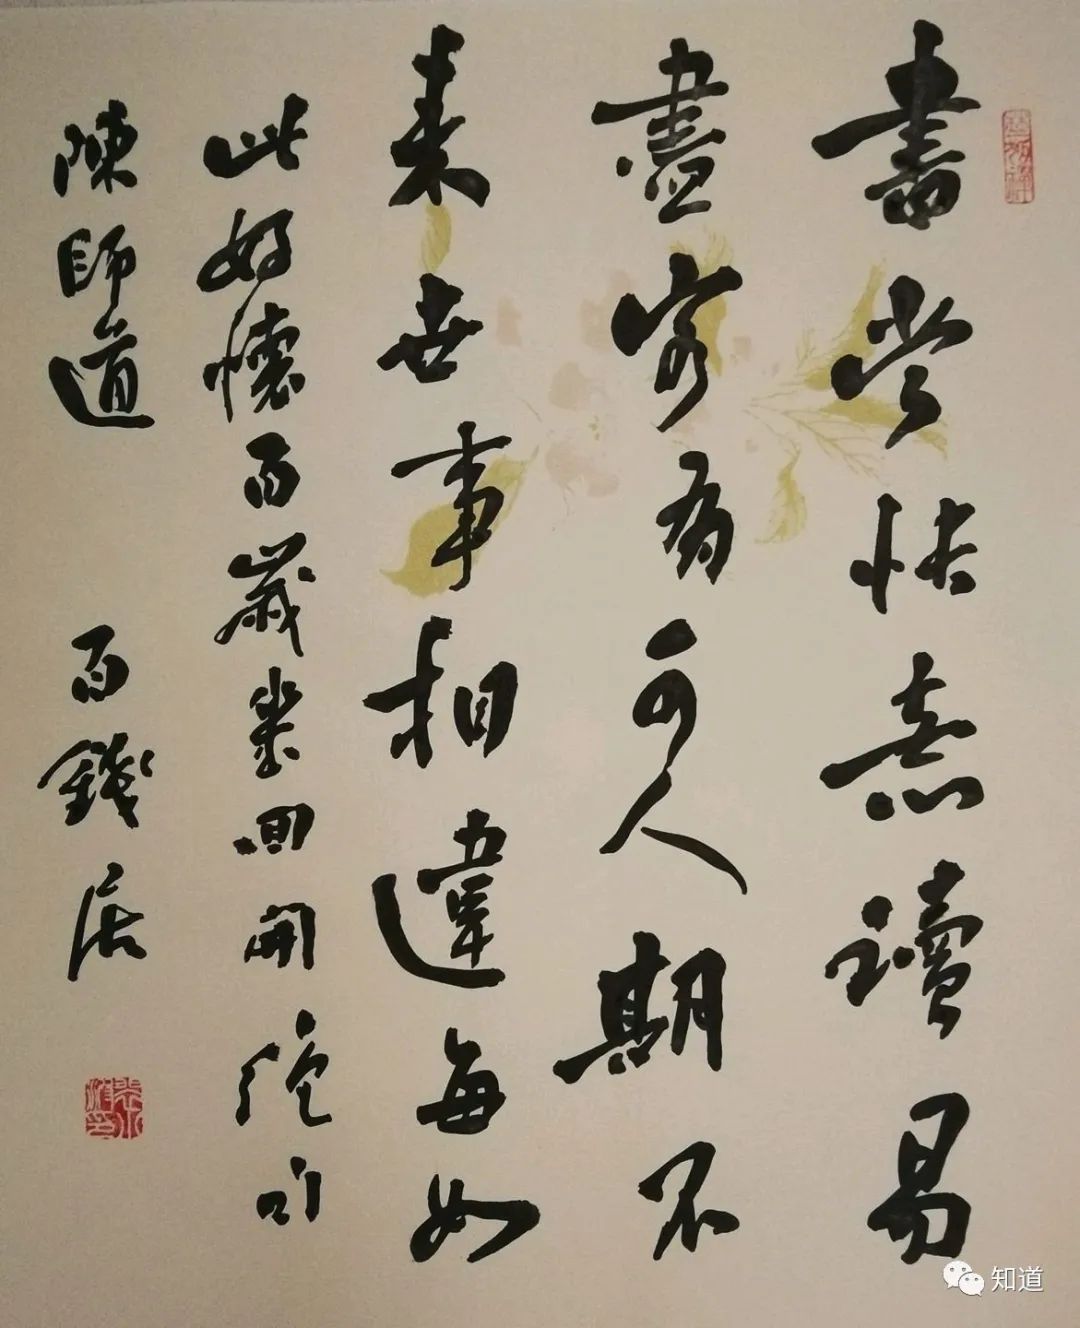 書當快意讀易
盡客有可人期不
来世事相違每如
此好懷百歲幾回開絕句
陳師道 百錢
知道